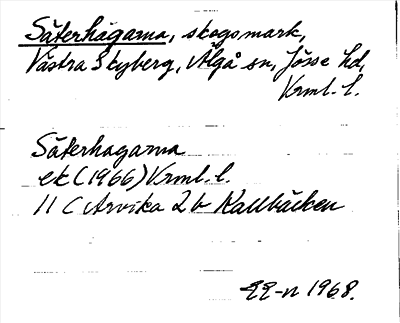 Säterhagarna, skogsmark,
Västra Skyberg, Älgå sn, Jösse hd,
Vrml. l.
Säterhagarna
ek (1966) Vrml. l.
11 C Arvika 2 b Kallbäcken
EE-n 1968.